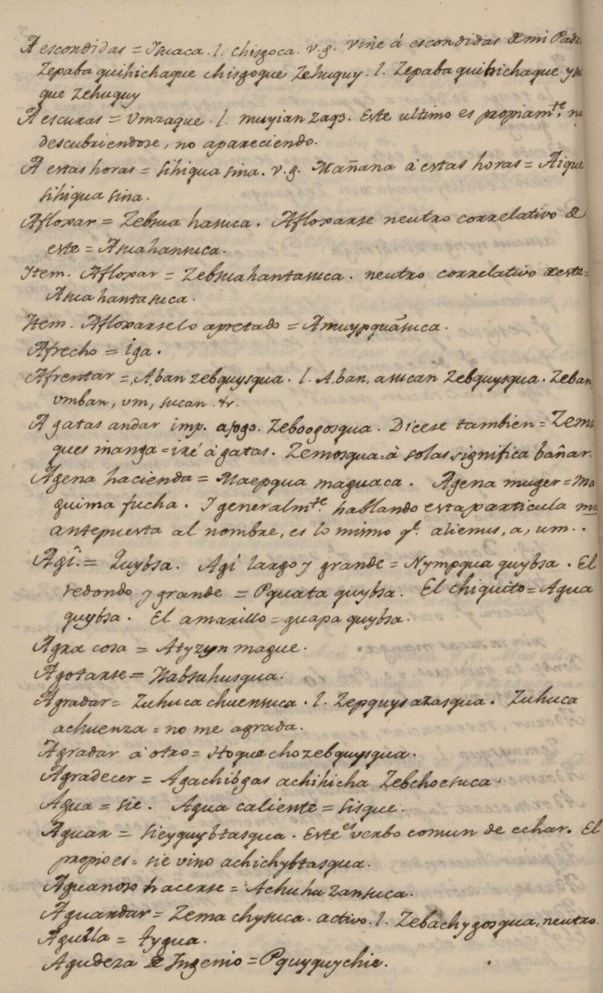 A escondidas = Isuaca. l. chisgoca. v.g. vine á escondidas de mi Padre
Zepaba quihichaque chisgoque Zehuquy. l. Zepaba quihichaque ysu
que Zehuquy
A escuras = vmzaque. l. muyian zaqs. Este ultimo es propiam.te no
descubriendose, no apareciendo.
A estas horas = sihiqua sina. v.g. Mañana á estas horas = Aique
sihiqua sina.
Afloxar = Zebsua hasuca. Afloxarse neutro correlativo de
este = Asuahansuca.
Item. Afloxar = Zebsuahantasuca. neutro correlativo de este =
Asuahantasuca.
Item. Afloxarse lo apretado = Amuypquãsuca.
Afrecho = iga.
Afrentar = Aban zebquysqua. l. Aban, asucan Zebquysqua. Zeban,
vmban, vm, sucan &.
A gatas andar imp. afogo. Zeboogosqua. Dicese tambien = Zemis
ques inanga = iré á gatas. Zemosqua = á solas significa bañar.
Agena hacienda = Maepqua maguaca. Agena muger = Ma
guima fucha. I generalm.te hablando esta particula ma
antepuesta al nombre, es lo mimo q.e alienus, a, um..
Agi. = Quybsa. Agi largo y grande = Nympqua quybsa. El
redondo y grande = Pquata quybsa. El chiquito = Agua
quybsa. El amarillo = guapa quybsa.
Agra cosa = Atyzyn mague.
Agotarse = Habsuhusqua.
Agradar = Zuhuca chuensuca. l. Zepquys azasqua. Zuhuca
achuenza = no me agrada.
Agradar á otro = Hoqua chozebquysqua.
Agradecer = Agachisgas achihicha Zebchoesuca.
Agua = sie. Agua caliente = sisque.
Aguar = sieyquybtasqua. Este es verbo comun de echar. El
propio es = sie vino achichybtasqua.
Aguanoso hacerse = Achuhuzansuca.
Aguardar = Zemachysuca. activo. l. Zebachygosqua, neutro.
Aguila = tygua.
Agudeza de Ingenio = Pquyquychie.